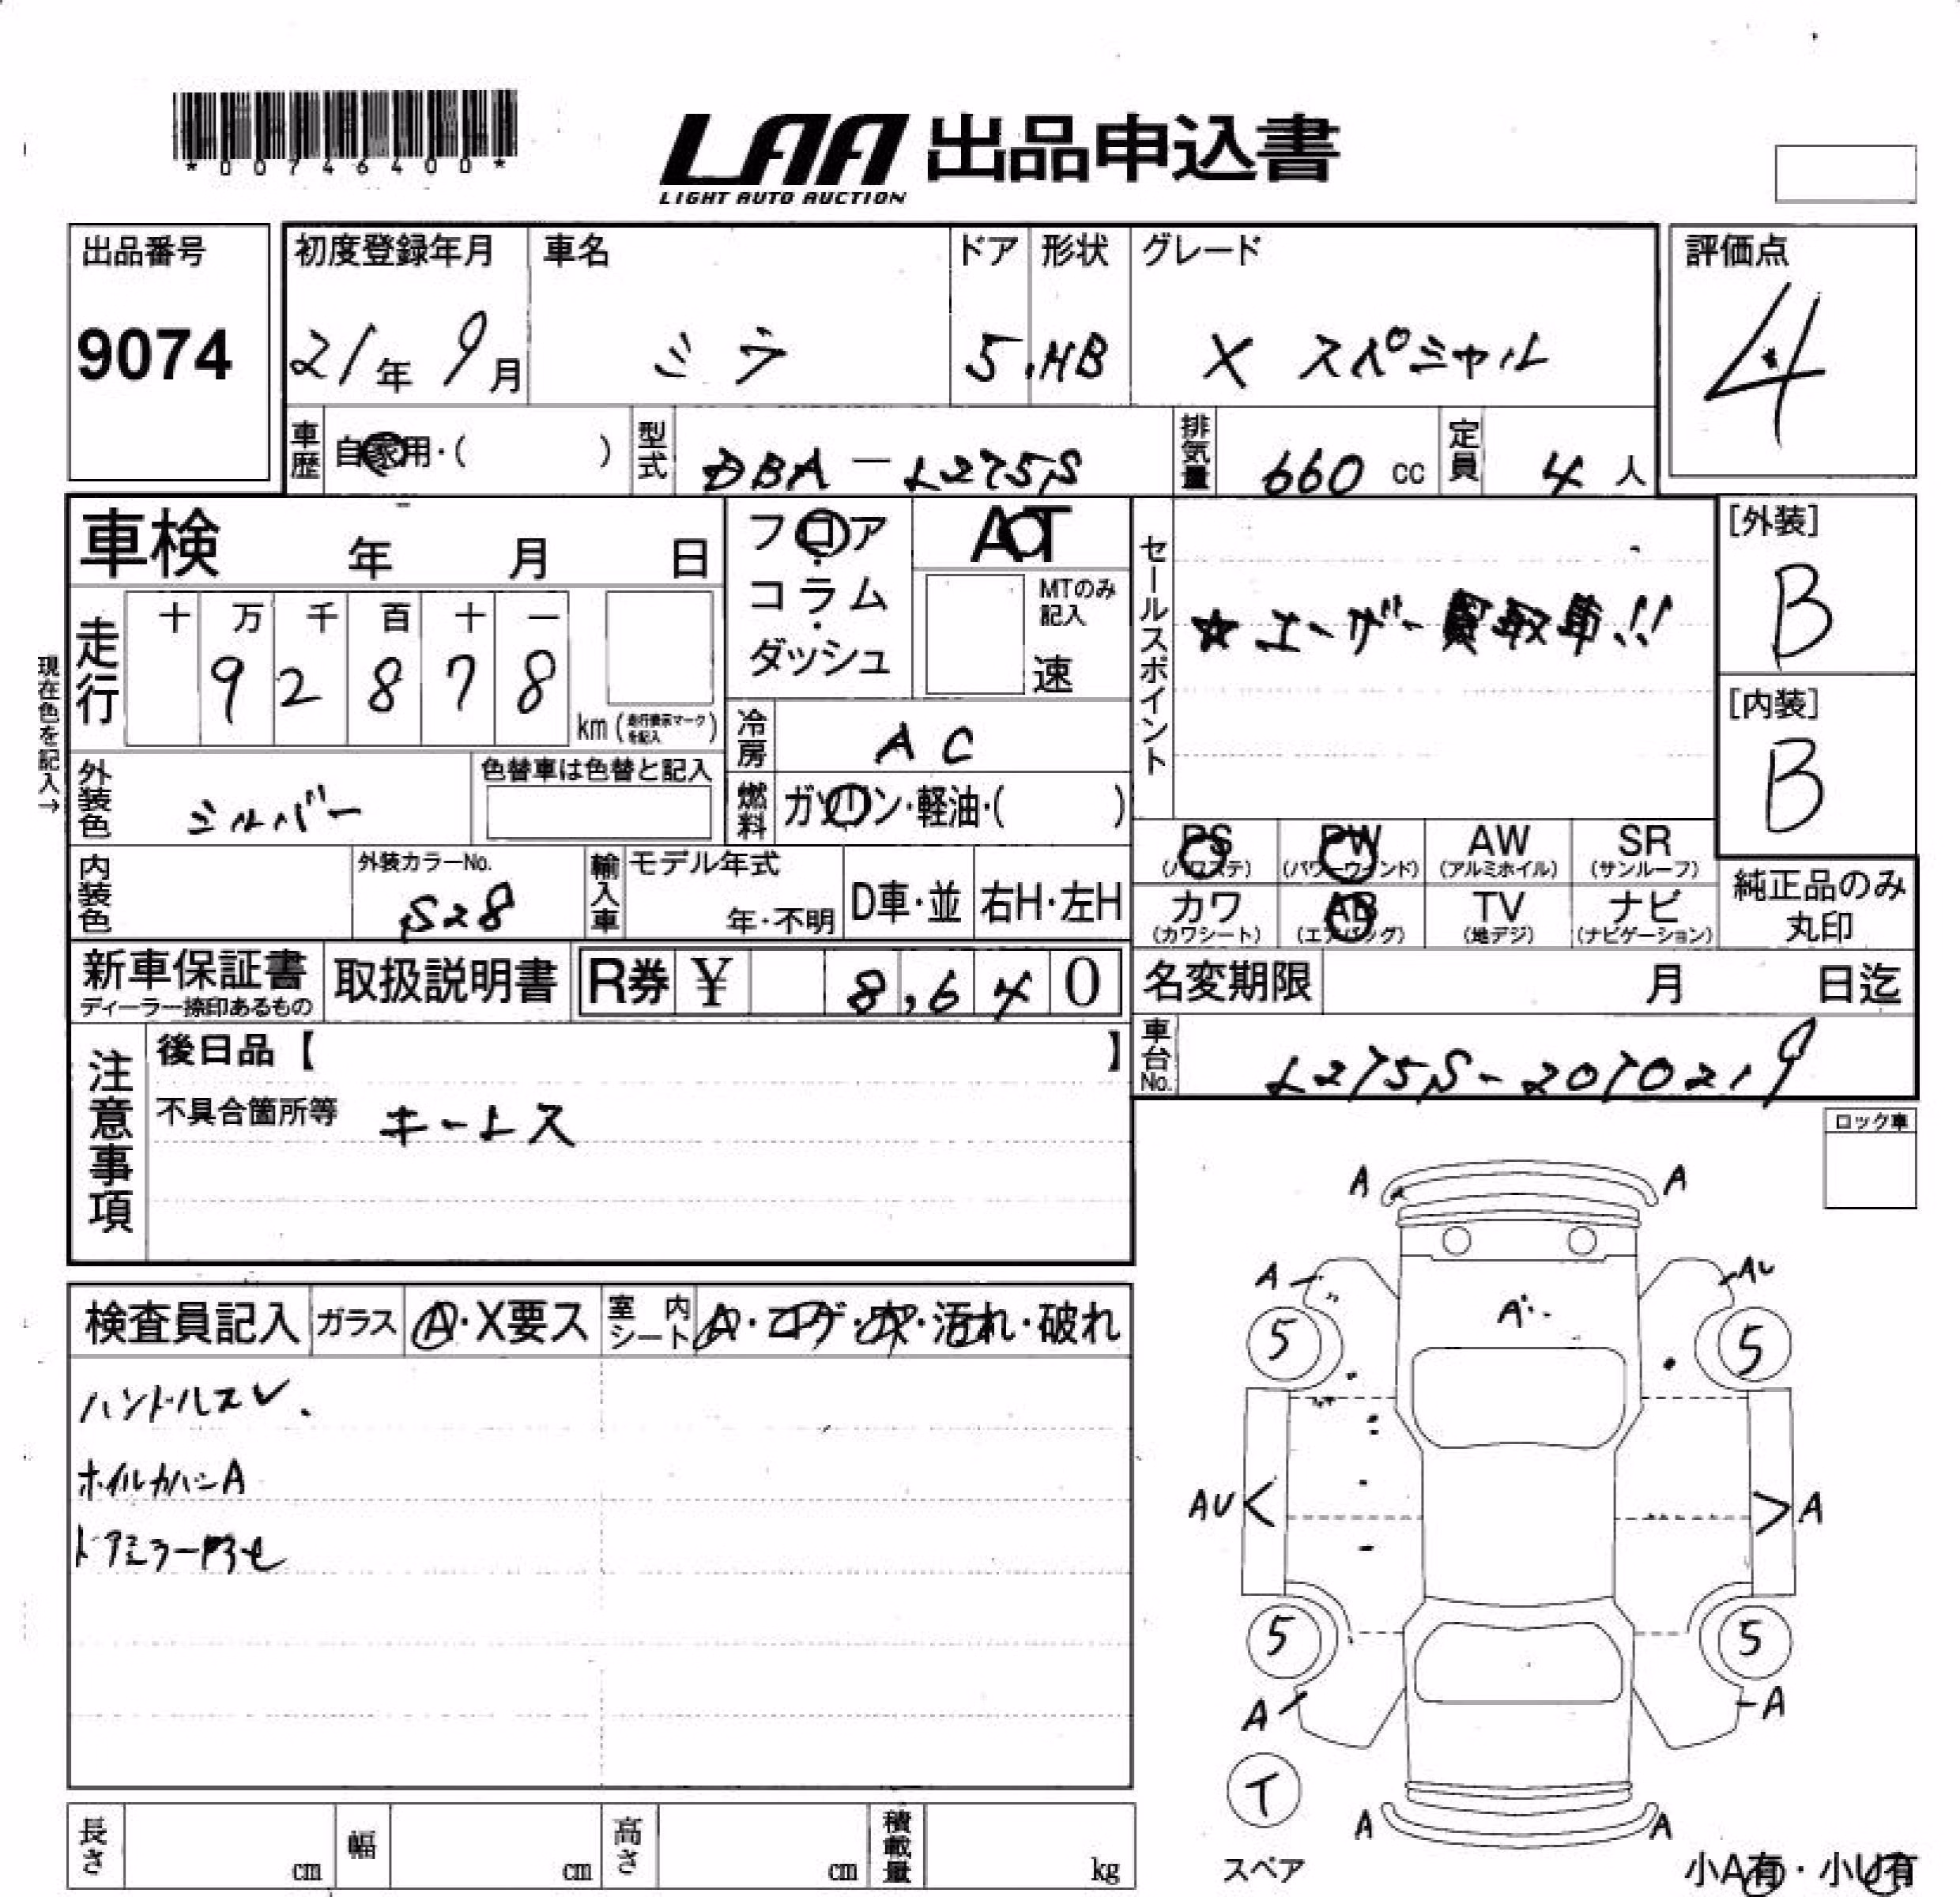 *00746400*
LAA 出品申込書
LIGHT AUTO AUCTION
出品番号
9074
初度登録年月 車名 ドア 形状 グレード 評価点
21年 9月 ミラ 5. HB X スペシャル 4
車歴 自家用・( ) 型式 DBA-L275S 排気量 660 cc 定員 4 人
車検 年 月 日
フロア・コラム・ダッシュ
AT
MTのみ記入
速
セールスポイント
★ユーザー買取車!!
[外装]
B
[内装]
B
現在色を記入→
走行 十 万 千 百 十 一
9 2 8 7 8
km (走行表示マークを記入)
冷房 AC
外装色 シルバー 色替車は色替と記入
燃料 ガソリン・軽油・( )
PS (パワステ) PW (パワーウインド) AW (アルミホイル) SR (サンルーフ)
カワ (カワシート) AB (エアバッグ) TV (地デジ) ナビ (ナビゲーション)
純正品のみ丸印
内装色 外装カラーNo. S28 輸入車 モデル年式 年・不明 D車・並 右H・左H
新車保証書 ディーラー捺印あるもの 取扱説明書 R券 ¥ 8,640
名変期限 月 日迄
車台No. L275S-2070219
注意事項
後日品【 】
不具合箇所等 キーレス
ロック車
検査員記入 ガラス A・X要ス 室内シート A・コゲ・穴・汚れ・破れ
ハンドルスレ.
ホイルカバーA
ドアミラー閉セ
A A
A AU
A
5 5
AU A
5 5
A A
T
スペア
A A
小A有・小U有
長さ cm 幅 cm 高さ cm 積載量 kg